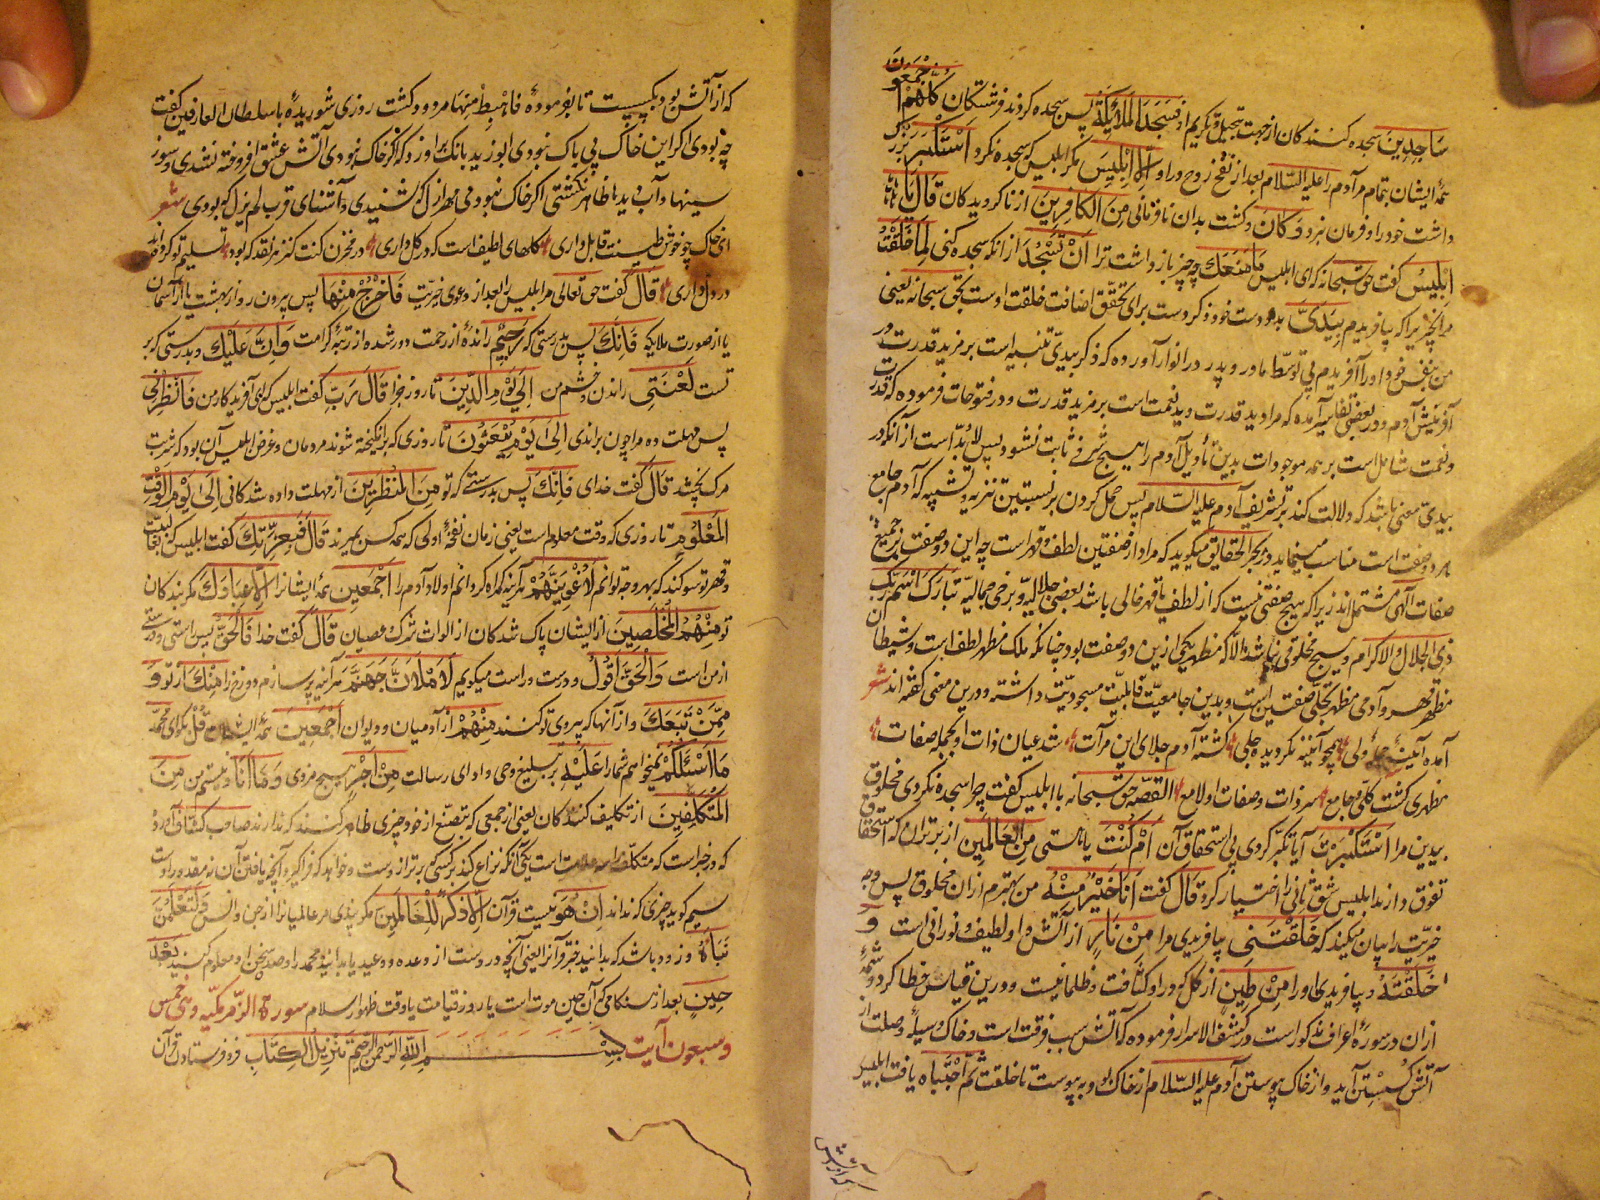 ساجدین سجده کنندگان از جهت تبجیل و تکریم او فسجد الملائکة پس سجده کردند فرشتگان کلهم اجمعون
همهٔ ایشان بتمام مر آدم را علیه السلام بعد از نفخ روح در او الا ابلیس مگر ابلیس که سجده نکرد استکبر بزرگ
داشت خود را و فرمان نبرد و کان و گشت بدان نافرمانی من الکافرین از ناگرویدگان قال یا
ابلیس گفت حق سبحانه که ای ابلیس ما منعک چه چیز باز داشت ترا ان تسجد از آنکه سجده کنی لما خلقت
مر آنچیزیرا که بیافریدم بیدی بدو دست خود ذکر دست برای تحقق اضافت خلقت اوست بحق سبحانه یعنی
من بنفس خود او را آفریدم بی توسط مادر و پدر در انوار آورده که ذکر بیدی تنبیه است بر مزید قدرت در
آفرینش آدم و در بعضی تفاسیر آمده که مراد ید قدرت و ید نعمت است بر مزید قدرت و در فتوحات فرموده که قدرت
و نعمت شامل است بر همه موجودات بدین تأویل آدم را هیچ شرفی ثابت نشود پس لابد است از آنکه در
بیدی معنی باشد که دلالت کند بر تشریف آدم علیه السلام پس حمل کردن بر نسبتین تنزیه و تشبیه که آدم جامع
هر دو صفت است مناسب مینماید در بحر الحقایق میگوید که مراد از صفتین لطف و قهر است چه این دو صفت بر جمیع
صفات الهی مشتمل اند زیرا که هیچ صفتی نیست که از لطف یا قهر خالی باشد بعضی جلالیه و برخی جمالیه تبارک اسم ربک
ذی الجلال والاکرام و هیچ مخلوقی نباشد الا که مظهر یکی ازین دو صفت بود چنانکه ملک مظهر لطف است و شیطان
مظهر قهر و آدمی مظهر تجلی صفتین است و بدین جامعیت قابلیت مسجودیت داشته و درین معنی گفته اند شعر
آمد آینهٔ جمله ولی همچو آیینه نگردیده جلی گشته آدم جلای این مرآت شد عیان ذات او بجمله صفات
مظهری گشت کلی و جامع سر ذات و صفات او لامع القصه حق سبحانه با ابلیس گفت چرا سجده نکردی مخلوق
بیدین مرا استکبرت آیا تکبر کردی بی استحقاق آن ام کنت یا هستی من العالمین از برتران که استحقاق
تفوق دارند ابلیس شق ثانی را اختیار کرد قال گفت انا خیر منه من بهترم از ان مخلوق پس وجه
خیریت را بیان میکند که خلقتنی بیافریدی مرا من نار از آتش و او لطیف و نورانی است و
خلقته و بیافریدی او را من طین از گل که در او کثافت و ظلمانیست و درین قیاس خطا کرد و شمهٔ
از ان در سورهٔ اعراف مذکور است و در کشف الاسرار فرموده که آتش سبب فرقت است و خاک وسیلهٔ وصلت از
آتش گسستن آید و از خاک پیوستن آدم علیه السلام از خاک بود به پیوست تا خلقت ثم اجتباه یافت ابلیس
که از آتش
که از آتش بود بگسیست تا بفرمودهٔ فاهبط منها مردود گشت روزی شوریدهٔ با سلطان العارفین گفت
چه بودی اگر این خاک بی باک نبودی ابو یزید بانگ بر او زد که اگر خاک نبودی آتش عشق افروخته نشدی و سوز
سینها و آب دیدها ظاهر نگشتی اگر خاک نبودی مهر ازل که شنیدی و آشنای قرب لم یزل که بودی شعر
ای خاک چو خوش طینت قابل داری گلهای لطیف است که در گل داری در مخزن کنت کنزا هر نقد که بود تسلیم تو کردند
در دل داری قال گفت حق تعالی مر ابلیس را بعد از دعوی خیریت فاخرج منها پس بیرون رو از بهشت یا از آسمان
یا از صورت ملایکه فانک پس بدرستی که رجیم راندهٔ از رحمت دور شده از رتبهٔ کرامت و ان علیک و بدرستی که بر
تست لعنتی راندن و خشم من الی یوم الدین تا روز جزا قال رب گفت ابلیس که ای آفریدگار من فانظرنی
پس مهلت ده مرا چون براندی الی یوم یبعثون تا روزی که برانگیخته شوند مردمان و غرض ابلیس آن بود که شربت
مرگ نچشد قال گفت خدای فانک پس بدرستی که تو من المنظرین از مهلت داده شدگانی الی یوم الوقت
المعلوم تا روزی که وقت معلوم است یعنی زمان نفخهٔ اولی که همه کس بمیرند قال فبعزتک گفت ابلیس که بعزت
و قهر تو سوگند که بهر وجه توانم لاغوینهم هر آینه گمراه گردانم اولاد آدم را اجمعین همهٔ ایشانرا الا عبادک مگر بندگان
تو منهم المخلصین از ایشان پاک شدگان از الواث شرک و عصیان قال گفت خدا فالحق پس راستی و درستی
از من است والحق اقول و درست و راست میگویم لاملان جهنم هر آینه پر سازم دوزخ را منک از تو و
ممن تبعک و از آنها که پیروی تو کنند منهم از آدمیان و دیوان اجمعین همهٔ ایشان قل بگو ای محمد
ما اسئلکم نمیخواهم شما را علیه بر تبلیغ وحی و ادای رسالت من اجر هیچ مزدی و ما انا و نیستم من من
المتکلفین از تکلیف کنندگان یعنی از جمعی که بتصنع از خود چیزی ظاهر کنند که ندارند صاحب کشاف آورد
که در خبر است که متکلف را سه علامت است یکی آنکه نزاع کند با کسی که برتر از وست و خواهد که فراگیرد آنچه یافتن آن نه مقدور اوست
سیم گوید چیزی که نداند ان هو نیست قرآن الا ذکر للعالمین مگر پندی مر عالمیانرا از جن و انس ولتعلمن
نباه و زود باشد که بدانید خبر قرآنرا یعنی آنچه در وست از وعده و وعید یا بدانید محمد را و صدق سخن او معلوم کنید بعد
حین بعد از هنگامی که آن حین موت است یا روز قیامت یا وقت ظهور اسلام سورة الزمر مکیه و هی خمس
و سبعون آیت بسم الله الرحمن الرحیم تنزیل الکتاب فرو فرستادن قرآن